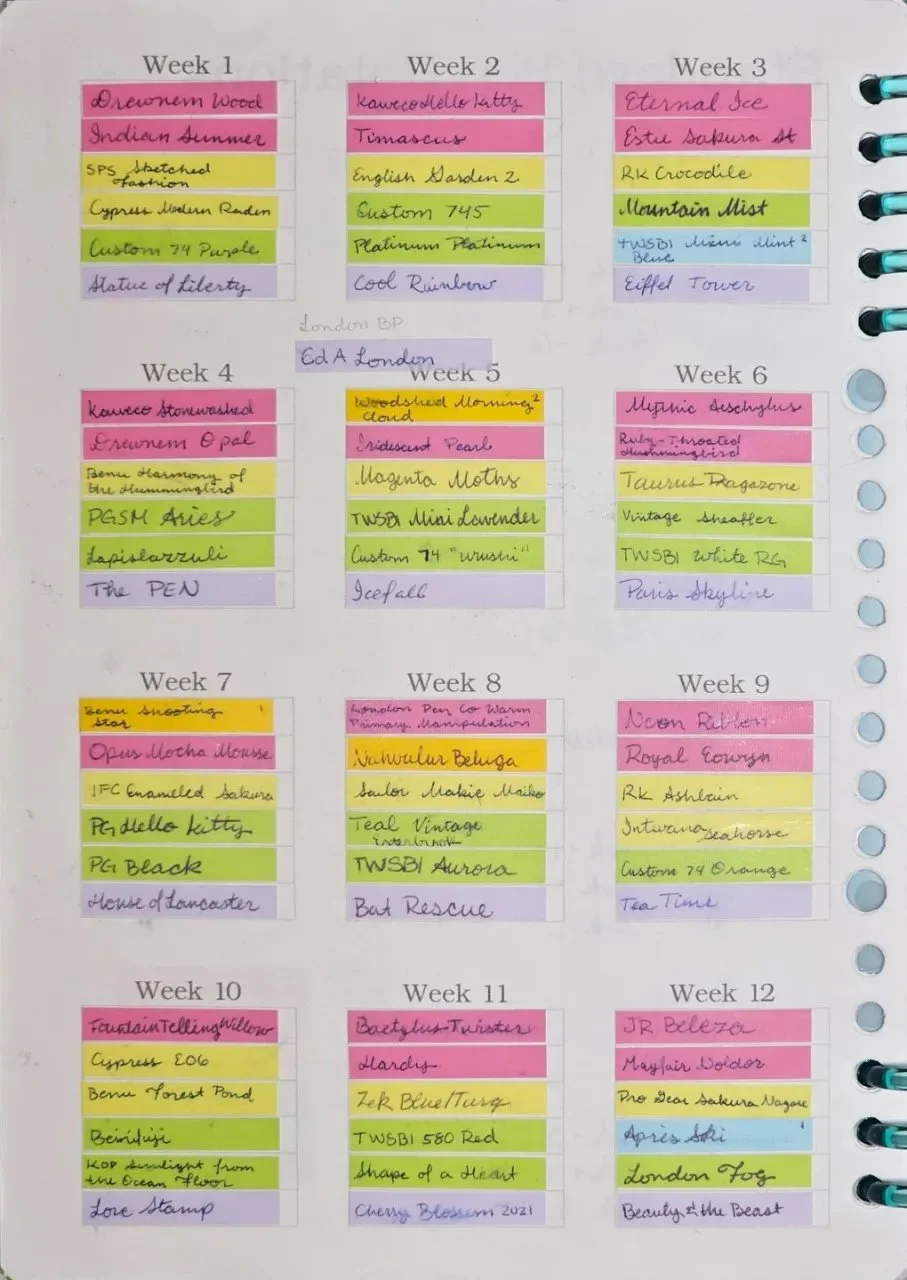 Week 1
Drewnem Wood
Indian Summer
SPS Sketched
fashion
Cypress Modern Raden
Custom 74 Purple
Statue of Liberty
Week 2
Kaweco Hello Kitty
Timascus
English Garden 2
Custom 745
Platinum Platinum
Cool Rainbow
Week 3
Eternal Ice
Estie Sakura St
RK Crocodile
Mountain Mist
TWSBI Mini Mint 2
Blue
Eiffel Tower
London BP
Ed A London
Week 4
Kaweco Stonewashed
Drewnem Opal
Benu Harmony of
the Hummingbird
PGSM Aries
Lapislazzuli
The PEN
Week 5
Woodshed Morning 2
Cloud
Iridescent Pearl
Magenta Moths
TWSBI Mini Lavender
Custom 74 "Urushi"
Icefall
Week 6
Mythic Aeschylus
Ruby-Throated
Hummingbird
Taurus
Vintage Sheaffer
TWSBI White RG
Paris Skyline
Week 7
Benu Shooting 1
Star
Opus Mocha Mousse
IFC Enameled Sakura
PG Hello Kitty
PG Black
House of Lancaster
Week 8
London Pen Co Warm
Primary Manipulation
Nahvalur Beluga
Sailor Makie Maiko
Teal Vintage
Esterbrook
TWSBI Aurora
Bat Rescue
Week 9
Neon Ribbon
Royal Eowyn
RK Ashtain
Intuana Seahorse
Custom 74 Orange
Tea Time
Week 10
FountainTellingWillow
Cypress E06
Benu Forest Pond
Benifuji
KOP Sunlight from
the Ocean Floor
Love Stamp
Week 11
Baetylus Twister
Hardy
Zek Blue/Turq
TWSBI 580 Red
Shape of a Heart
Cherry Blossom 2021
Week 12
JR Beleza
Mayfair Noldor
Pro Gear Sakura Nagare
Après Ski 1
London Fog
Beauty & the Beast